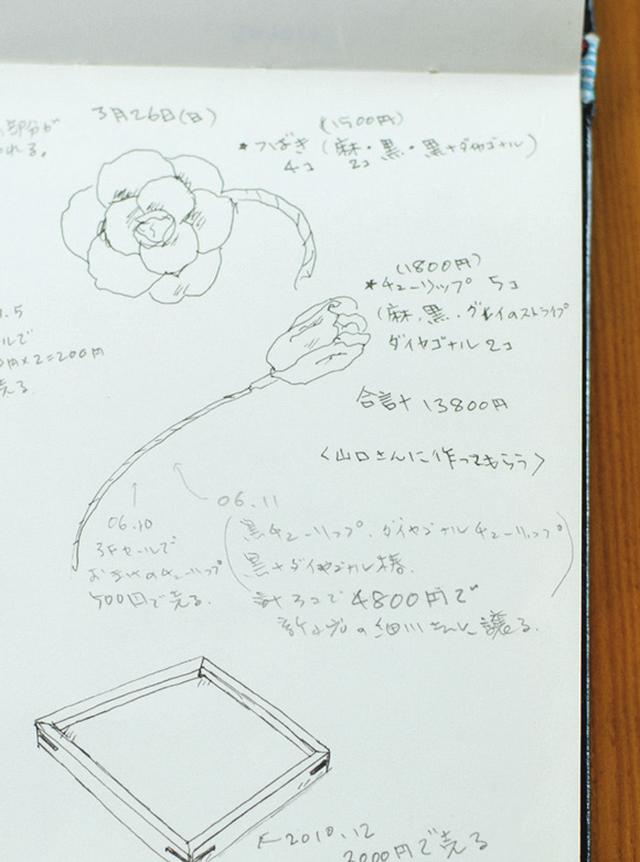 部分が
れる。
3月26日(日)
(1500円)
*つばき(麻・黒・黒+ダイヤゴナル)
4コ 2コ
(1800円)
*チューリップ 5コ
(麻、黒・グレイのストライプ
ダイヤゴナル 2コ
.5
ルで
円×2=200円
売る
合計 13800円
<山口さんに作ってもらう>
06.11
06.10
3Fセールで
チューリップ
500円で売る.
(黒チューリップ、ダイヤゴナルチューリップ
黒+ダイヤゴナル椿.
計3コで4800円で
の細川さんに譲る.)
2010.12
2000円で売る